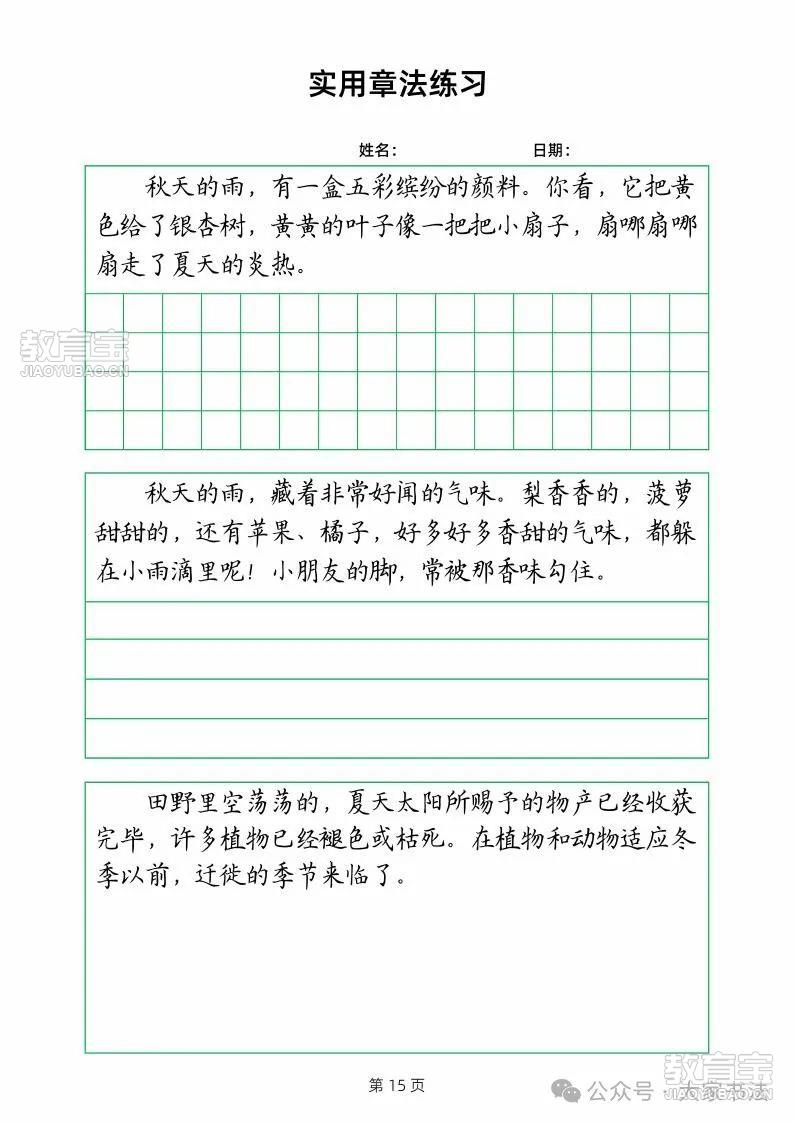 实用章法练习
姓名： 日期：
秋天的雨，有一盒五彩缤纷的颜料。你看，它把黄
色给了银杏树，黄黄的叶子像一把把小扇子，扇哪扇哪
扇走了夏天的炎热。
教育宝
JIAOYUBAO.CN
秋天的雨，藏着非常好闻的气味。梨香香的，菠萝
甜甜的，还有苹果、橘子，好多好多香甜的气味，都躲
在小雨滴里呢！小朋友的脚，常被那香味勾住。
田野里空荡荡的，夏天太阳所赐予的物产已经收获
完毕，许多植物已经褪色或枯死。在植物和动物适应冬
季以前，迁徙的季节来临了。
第 15 页
教育宝
JIAOYUBAO.CN
公众号 · 大家书法